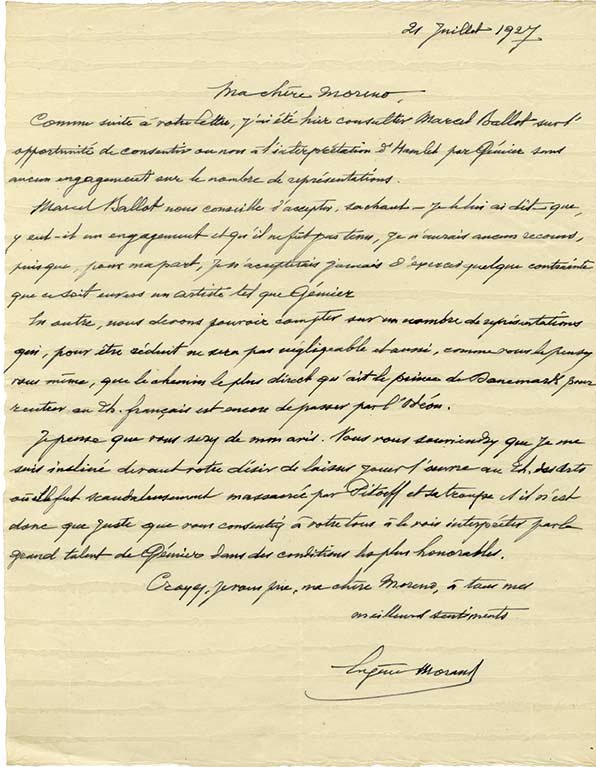 21 Juillet 1927
Ma chère Moreno,
Comme suite à votre lettre, j'ai été hier consulter Marcel Ballot sur l'
opportunité de consentir ou non à l'interprétation d'Hamlet par Gémier sans
aucun engagement sur le nombre de représentations.
Marcel Ballot nous conseille d'accepter, sachant – je le lui ai dit – que,
y eut-il un engagement et qu'il ne fut pas tenu, je n'aurais aucun recours,
puisque, pour ma part, je n'accepterais jamais d'exercer quelque contrainte
que ce soit envers un artiste tel que Gémier
En outre, nous devons pouvoir compter sur un nombre de représentations
qui, pour être réduit ne sera pas négligeable et aussi, comme vous le pensez
vous même, que le chemin le plus direct qu'ait le prince de Danemark pour
rentrer au Th. français est encore de passer par l'Odéon.
Je pense que vous serez de mon avis. Vous vous souviendrez que je me
suis incliné devant votre désir de laisser jouer l'œuvre au Th. des Arts
où elle fut scandaleusement massacrée par Pitoëff et sa troupe et il n'est
donc que juste que vous consentiez à votre tour à la voir interprétée par le
grand talent de Gémier dans des conditions plus honorables.
Croyez, je vous prie, ma chère Moreno, à tous mes
meilleurs sentiments
Eugène Morand